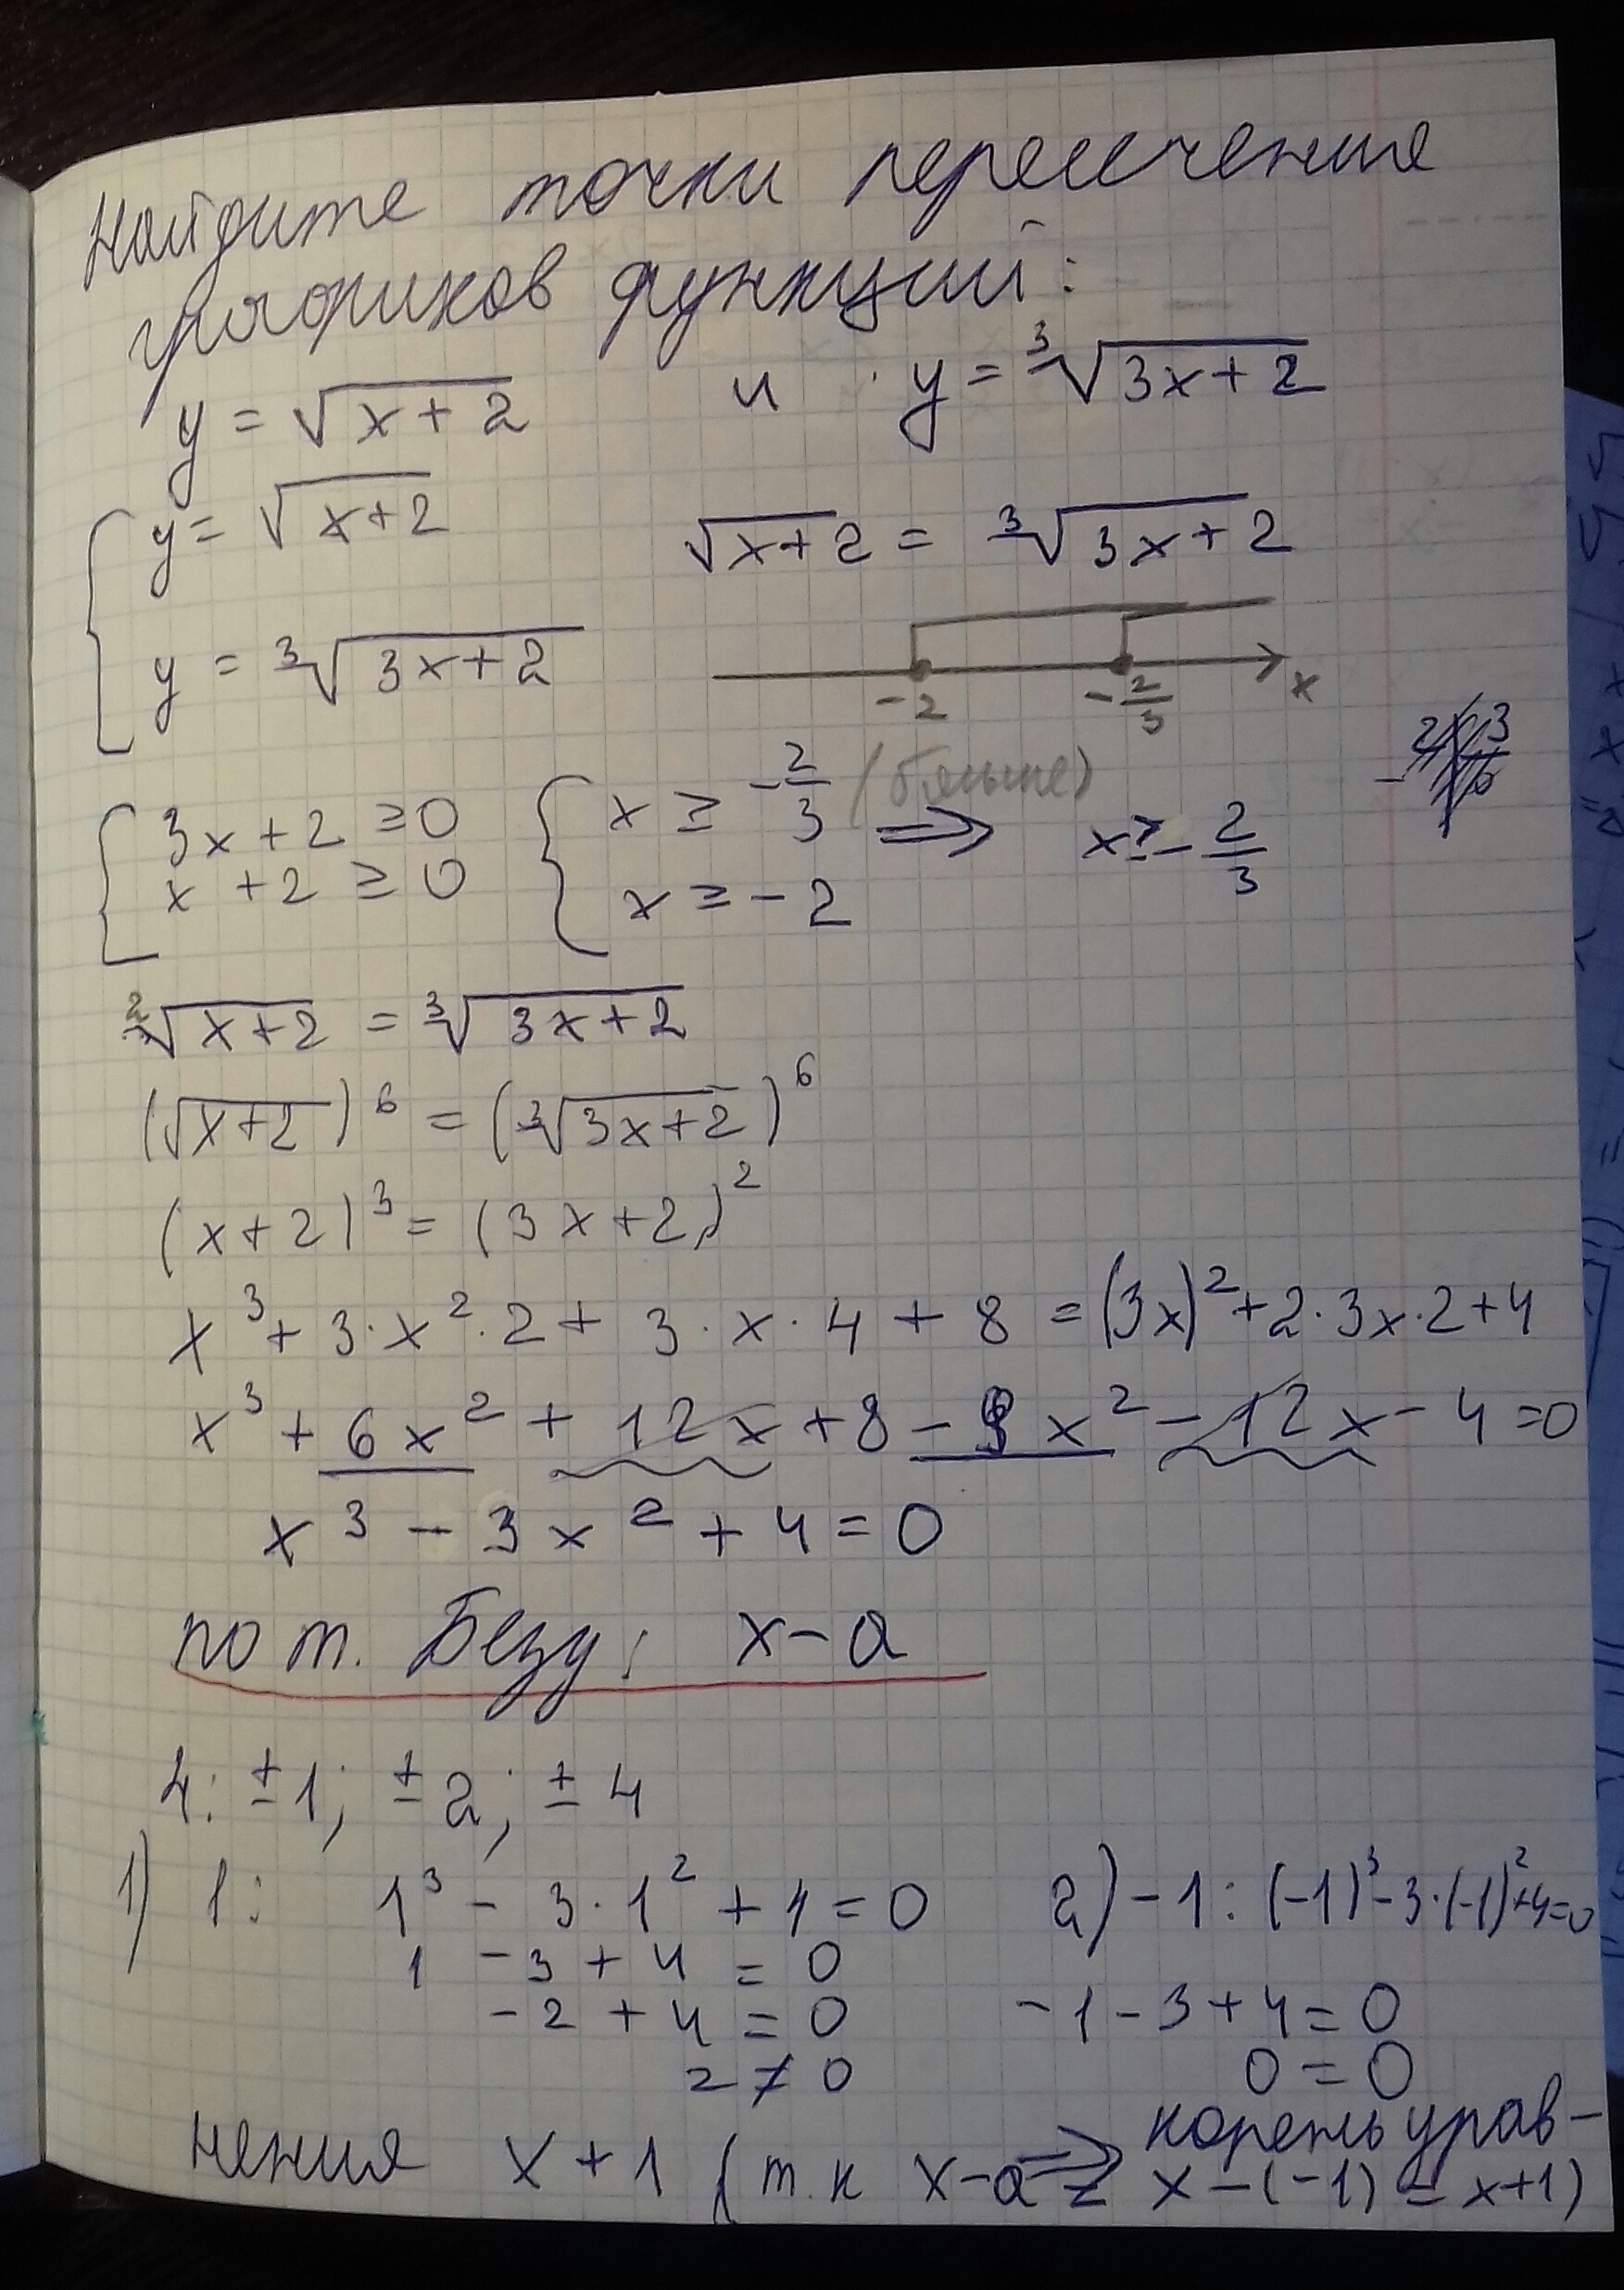 Найдите точки пересечения
графиков функций:
y = √(x+2) и y = ³√(3x+2)
{ y = √(x+2)
√(x+2) = ³√(3x+2)
y = ³√(3x+2)
-2 -2/3 x
{ 3x+2 ≥ 0
x+2 ≥ 0
{ x ≥ -2/3 (больше)
x ≥ -2
⇒ x ≥ -2/3
²√(x+2) = ³√(3x+2)
(√(x+2))⁶ = (³√(3x+2))⁶
(x+2)³ = (3x+2)²
x³ + 3·x²·2 + 3·x·4 + 8 = (3x)² + 2·3x·2 + 4
x³ + 6x² + 12x + 8 - 9x² - 12x - 4 = 0
x³ - 3x² + 4 = 0
по т. Безу: x-a
4: ±1; ±2; ±4
1) 1: 1³ - 3·1² + 4 = 0
1 - 3 + 4 = 0
-2 + 4 = 0
2 ≠ 0
2) -1: (-1)³ - 3·(-1)² + 4 = 0
-1 - 3 + 4 = 0
0 = 0
⇒ корень урав-
нения x+1 (т.к x-a = x-(-1) = x+1)